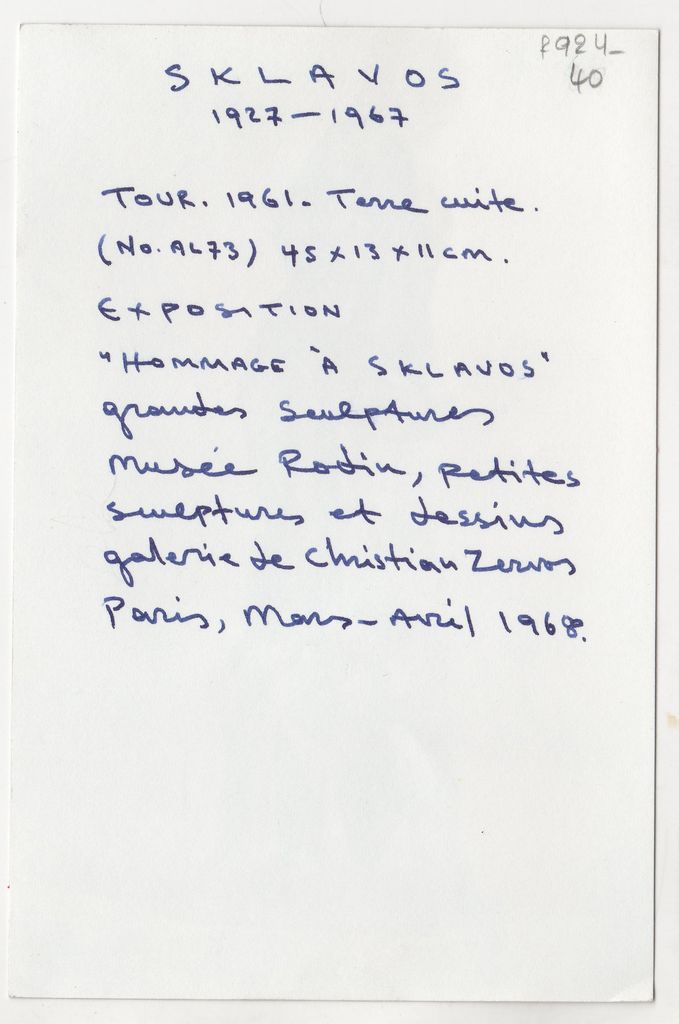 P924-
40
SKLAVOS
1927-1967
TOUR. 1961. Terre cuite.
(No. AL73) 45 x 13 x 11 cm.
EXPOSITION
"HOMMAGE À SKLAVOS"
grandes sculptures
Musée Rodin, petites
sculptures et dessins
galerie de Christian Zervos
Paris, Mars-Avril 1968.